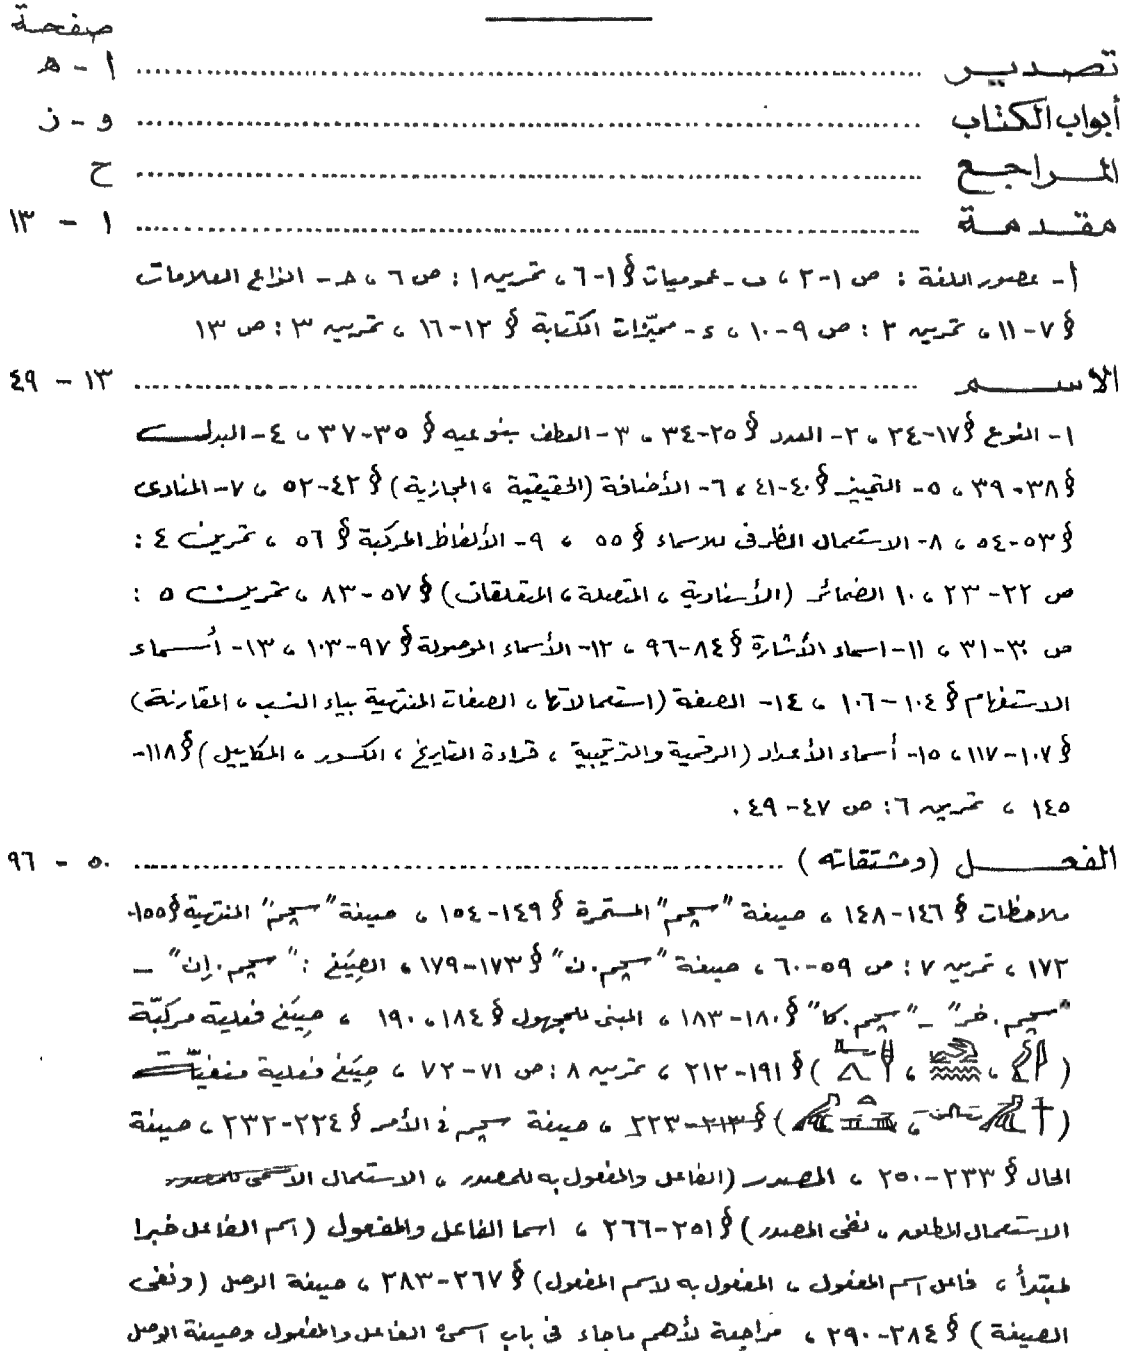 صفحة
تصدير ........ أ - هـ
أبواب الكتاب ........ و - ز
المراجع ........ ح
مقدمة ........ ١ - ١٣
أ- عصور اللغة : ص ١-٢ ، ب - عموميات § ١-٦ ، تمرين ١ : ص ٦ ، حـ - انواع العلامات
§ ٧-١١ ، تمرين ٢ : ص ٩-١٠ ، ء - مميّزات الكتابة § ١٢-١٦ ، تمرين ٣ : ص ١٣
الاسم ........ ١٣ - ٤٩
١- النوع § ١٧-٢٤ ، ٢- العدد § ٢٥-٣٤ ، ٣- العطف بنوعيه § ٣٥-٣٧ ، ٤- البدل
§ ٣٨-٣٩ ، ٥- التمييز § ٤٠-٤١ ، ٦- الأضافة (الحقيقية ، المجازية) § ٤٢-٥٢ ، ٧- المنادى
§ ٥٣-٥٤ ، ٨- الاستعمال الظرفى للاسماء § ٥٥ ، ٩- الألفاظ المركبة § ٥٦ ، تمرين ٤ :
ص ٢٢-٢٣ ، ١٠ الضمائر (الأسنادية ، المتصلة ، المتعلقات) § ٥٧-٨٣ ، تمرين ٥ :
ص ٣٠-٣١ ، ١١- اسماء الأشارة § ٨٤-٩٦ ، ١٢- الأسماء الموصولة § ٩٧-١٠٣ ، ١٣- أسماء
الاستفهام § ١٠٤-١٠٦ ، ١٤- الصفة (استعمالاتها ، الصفات المنتهية بياء النسب ، المقارنة)
§ ١٠٧-١١٧ ، ١٥- أسماء الأعداد (الرقمية والترتيبية ، قراءة التاريخ ، الكسور ، المكاييل) § ١١٨-
١٤٥ ، تمرين ٦ : ص ٤٧-٤٩ .
الفعل (ومشتقاته) ........ ٥٠ - ٩٦
ملاحظات § ١٤٦-١٤٨ ، صيغة "سچم" المستمرة § ١٤٩-١٥٤ ، صيغة "سچم" المنتهية § ١٥٥-
١٧٢ ، تمرين ٧ : ص ٥٩-٦٠ ، صيغة "سچم.ن" § ١٧٣-١٧٩ ، الصِيَغ : "سچم.إن" -
"سچم.خر" - "سچم.كا" § ١٨٠-١٨٣ ، المبنى للمجهول § ١٨٤ ، ١٩٠ ، صِيَغ فعلية مركبّة
( ، ، ) § ١٩١-٢١٢ ، تمرين ٨ : ص ٧١-٧٢ ، صِيَغ فعلية منفيّة
( ، ) § ٢١٣-٢٢٣ ، صيغة سچم فى الأمر § ٢٢٤-٢٣٢ ، صيغة
الحال § ٢٣٣-٢٥٠ ، المصدر (الفاعل والمفعول به للمصدر ، الاستعمال الاسمى للمصدر
الاستعمال المطلق ، نفى المصدر) § ٢٥١-٢٦٦ ، اسما الفاعل والمفعول (اسم الفاعل خبرا
لمبتدأ ، فاعل اسم المفعول ، المفعول به لاسم المفعول) § ٢٦٧-٢٨٣ ، صيغة الوصل (ونفى
الصيغة) § ٢٨٤-٢٩٠ ، مراجعة لأهم ماجاء فى باب اسمى الفاعل والمفعول وصيغة الوصل